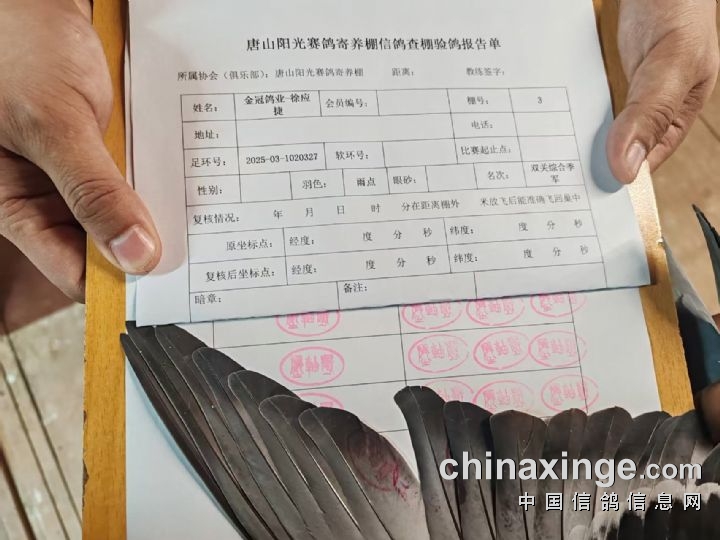 唐山阳光赛鸽寄养棚信鸽查棚验鸽报告单
所属协会（俱乐部）：唐山阳光赛鸽寄养棚 距离： 教练签字：
姓名： 金冠鸽业-徐应捷 会员编号： 棚号： 3
地址： 电话：
足环号： 2025-03-1020327 软环号： 比赛起止点：
性别： 羽色： 雨点 眼砂： 名次： 双关综合季军
复核情况： 年 月 日 时 分在距离棚外 米放飞后能准确飞回巢中
原坐标点： 经度： 度 分 秒 纬度： 度 分 秒
复核后坐标点： 经度： 度 分 秒 纬度： 度 分 秒
暗章： 备注：
chinaxinge.com
中国信鸽信息网